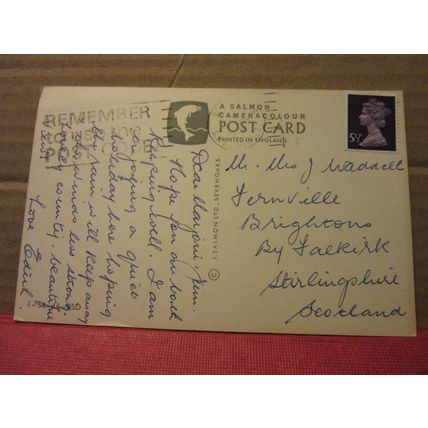 REMEMBER
A SALMON
CAMERACOLOUR
POST CARD
PRINTED IN ENGLAND
5½P
Dear Marjorie, Jim.
Hope you are both
keeping well. I am
enjoying a quiet
holiday here hoping
the rain will keep away
& the winds less strong.
Lovely county, beautiful
views.
Love Edith
J SALMON LTD. SEVENOAKS
©
Mr. Mrs J Waddell
Fernville
Brightons
By Falkirk
Stirlingshire
Scotland